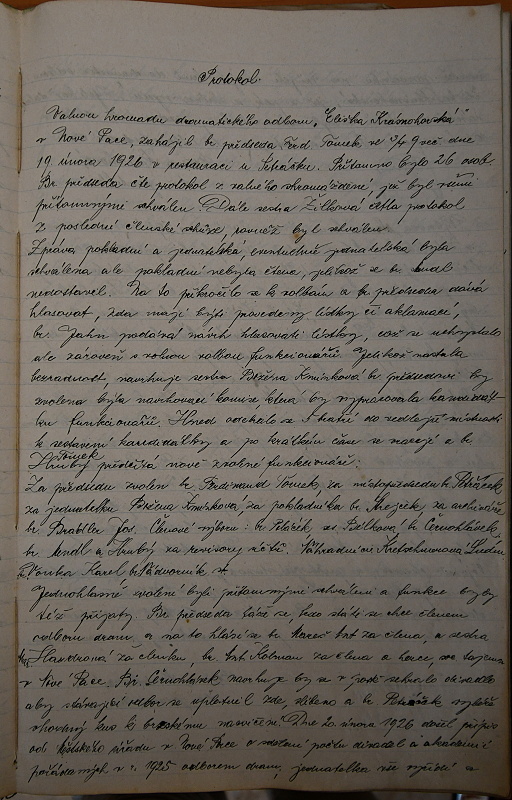 Protokol.
Valnou hromadu dramatického odboru „Eliška Krásnohorská"
v Nové Pace, zahájil br. předseda Ferd. Tomek, ve ¾ 9 več. dne
19 února 1926 v restauraci u Přítomno bylo 26 osob.
Br. předseda čte protokol z valného shromáždění, jež byl všemi
přítomnými schválen. Dále sestra četla protokol
z poslední členské schůze, rovněž byl schválen.
Zpráva pokladní a jednatelská, eventuelně jednatelská byla
schválena ale pokladní nebyla čtena, jelikož se br.
nedostavil. Na to přikročilo se k volbám a br. předseda dává
hlasovat, zda mají býti provedeny lístky či aklamací,
br. Jahn podává návrh hlasovati lístky, což se
ale zároveň s volnou volbou funkcionářů. Jelikož nastala
bezradnost, navrhuje sestra Božena Kmínková br. předsedovi by
zvolena byla navrhovací komise, která by vypracovala
funkcionářů. Hned odebralo se 5 bratří do vedlejší místnosti
k sestavení kandidátky a po krátkém čase se vracejí a br.
Hrubý předčítá nově zvolené funkcionáře:
Za předsedu zvolen br. Ferdinand Tomek, za místopředsedu br.
za jednatelku Božena Kmínková za pokladníka br. Krejčík, za archiváře
br. Brabler Jos. Členové výboru: br. Poláček, ses. Bílková br. Černohlávek,
br. Mendl a Hrubý za revisory účtů. Náhradníci Kretschmerová
Vonka Karel, br. Nádvorník st.
Jednohlasně zvolení byli přítomnými schváleni a funkce byly
též přijaty. Br. předseda táže se, kdo státi se chce členem
odboru dram. a na to hlásí se br. Mareš Ant. za člena, a sestra
za členku, br. Ant. Kotrman za člena a herce,
v Nové Pace. Br. Černohlávek navrhuje by se v obci sehrálo divadlo
aby stávající odbor se uplatnil zde, slíbeno a br. vyhledá
vhodný kus k brzskému nacvičení. Dne 20. února 1926 došel přípis
od městského úřadu v Nové Pace o sdělení počtu divadel a akademií
pořádaných v r. 1925 odborem dram., jednatelka vše vyřídí a